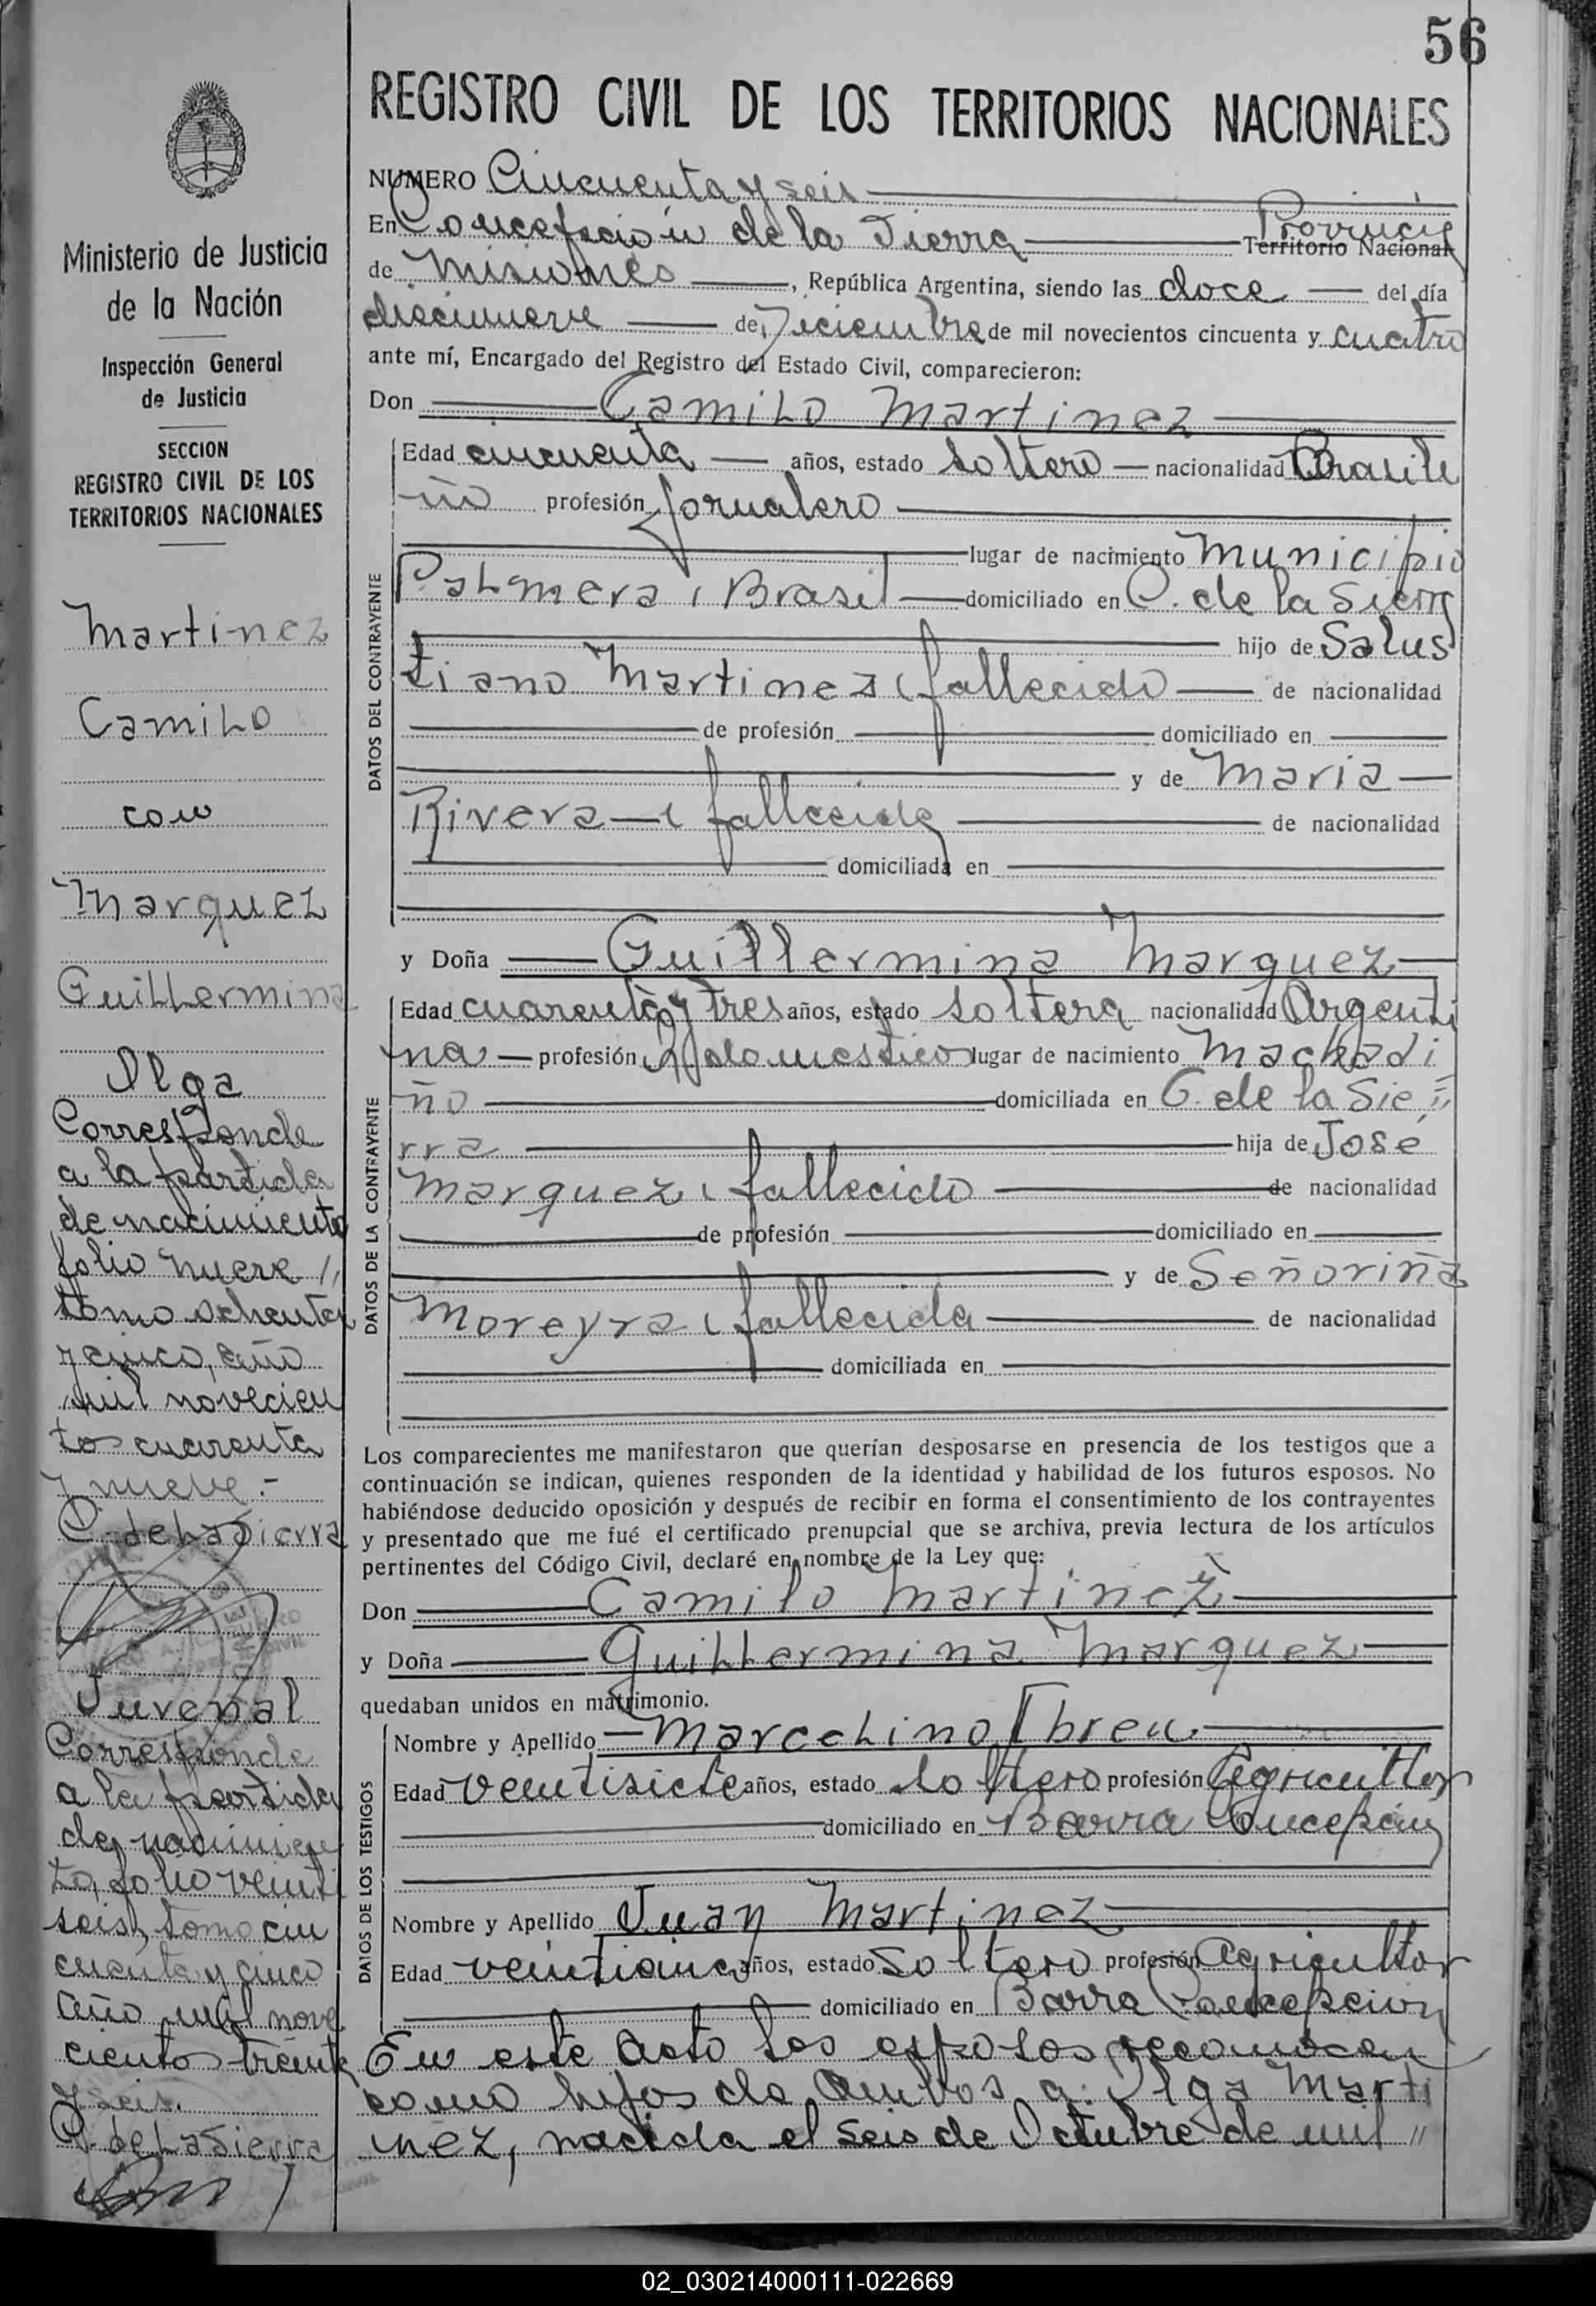 56
REGISTRO CIVIL DE LOS TERRITORIOS NACIONALES
NUMERO Cincuenta y seis
En Concepción de la Sierra Provincia Territorio Nacional
de Misiones, República Argentina, siendo las doce del día
diecinueve de Diciembre de mil novecientos cincuenta y cuatro
ante mí, Encargado del Registro del Estado Civil, comparecieron:
Don Camilo Martinez
DATOS DEL CONTRAYENTE
Edad cincuenta años, estado soltero nacionalidad Brasile
ño profesión Jornalero
lugar de nacimiento Municipio
Palmera, Brasil domiciliado en C. de la Sierra
hijo de Salus
tiano Martinez, fallecido de nacionalidad
de profesión domiciliado en
y de Maria
Rivera, fallecida de nacionalidad
domiciliada en
y Doña Guillermina Marquez
DATOS DE LA CONTRAYENTE
Edad cuarenta y tres años, estado soltera nacionalidad Argenti
na profesión Q. domesticos lugar de nacimiento Machadi
ño domiciliada en C. de la Sie "
rra hija de José
Marquez, fallecido de nacionalidad
de profesión domiciliado en
y de Señoriña
Moreyra, fallecida de nacionalidad
domiciliada en
Los comparecientes me manifestaron que querían desposarse en presencia de los testigos que a
continuación se indican, quienes responden de la identidad y habilidad de los futuros esposos. No
habiéndose deducido oposición y después de recibir en forma el consentimiento de los contrayentes
y presentado que me fué el certificado prenupcial que se archiva, previa lectura de los artículos
pertinentes del Código Civil, declaré en nombre de la Ley que:
Don Camilo Martinez
y Doña Guillermina Marquez
quedaban unidos en matrimonio.
DATOS DE LOS TESTIGOS
Nombre y Apellido Marcelino Abreu
Edad veintisiete años, estado soltero profesión Agricultor
domiciliado en Barra Concepción
Nombre y Apellido Juan Martinez
Edad veinticinco años, estado soltero profesión Agricultor
domiciliado en Barra Concepción
En este acto los esposos reconocen
como hijos de ambos a: Olga Marti
nez, nacida el seis de Octubre de mil "
Ministerio de Justicia
de la Nación
Inspección General
de Justicia
SECCION
REGISTRO CIVIL DE LOS
TERRITORIOS NACIONALES
Martinez
Camilo
con
Marquez
Guillermina
Olga
Corresponde
a la partida
de nacimiento
folio nueve "
tomo ochenta
y cinco, año
mil novecien
tos cuarenta
y nueve.-
C. de La Sierra
Juvenal
Corresponde
a la partida
de nacimien
to, folio veinti
seis, tomo cin
cuenta y cinco
año mil nove
cientos treinta
y seis.
C. de La Sierra
02_030214000111-022669